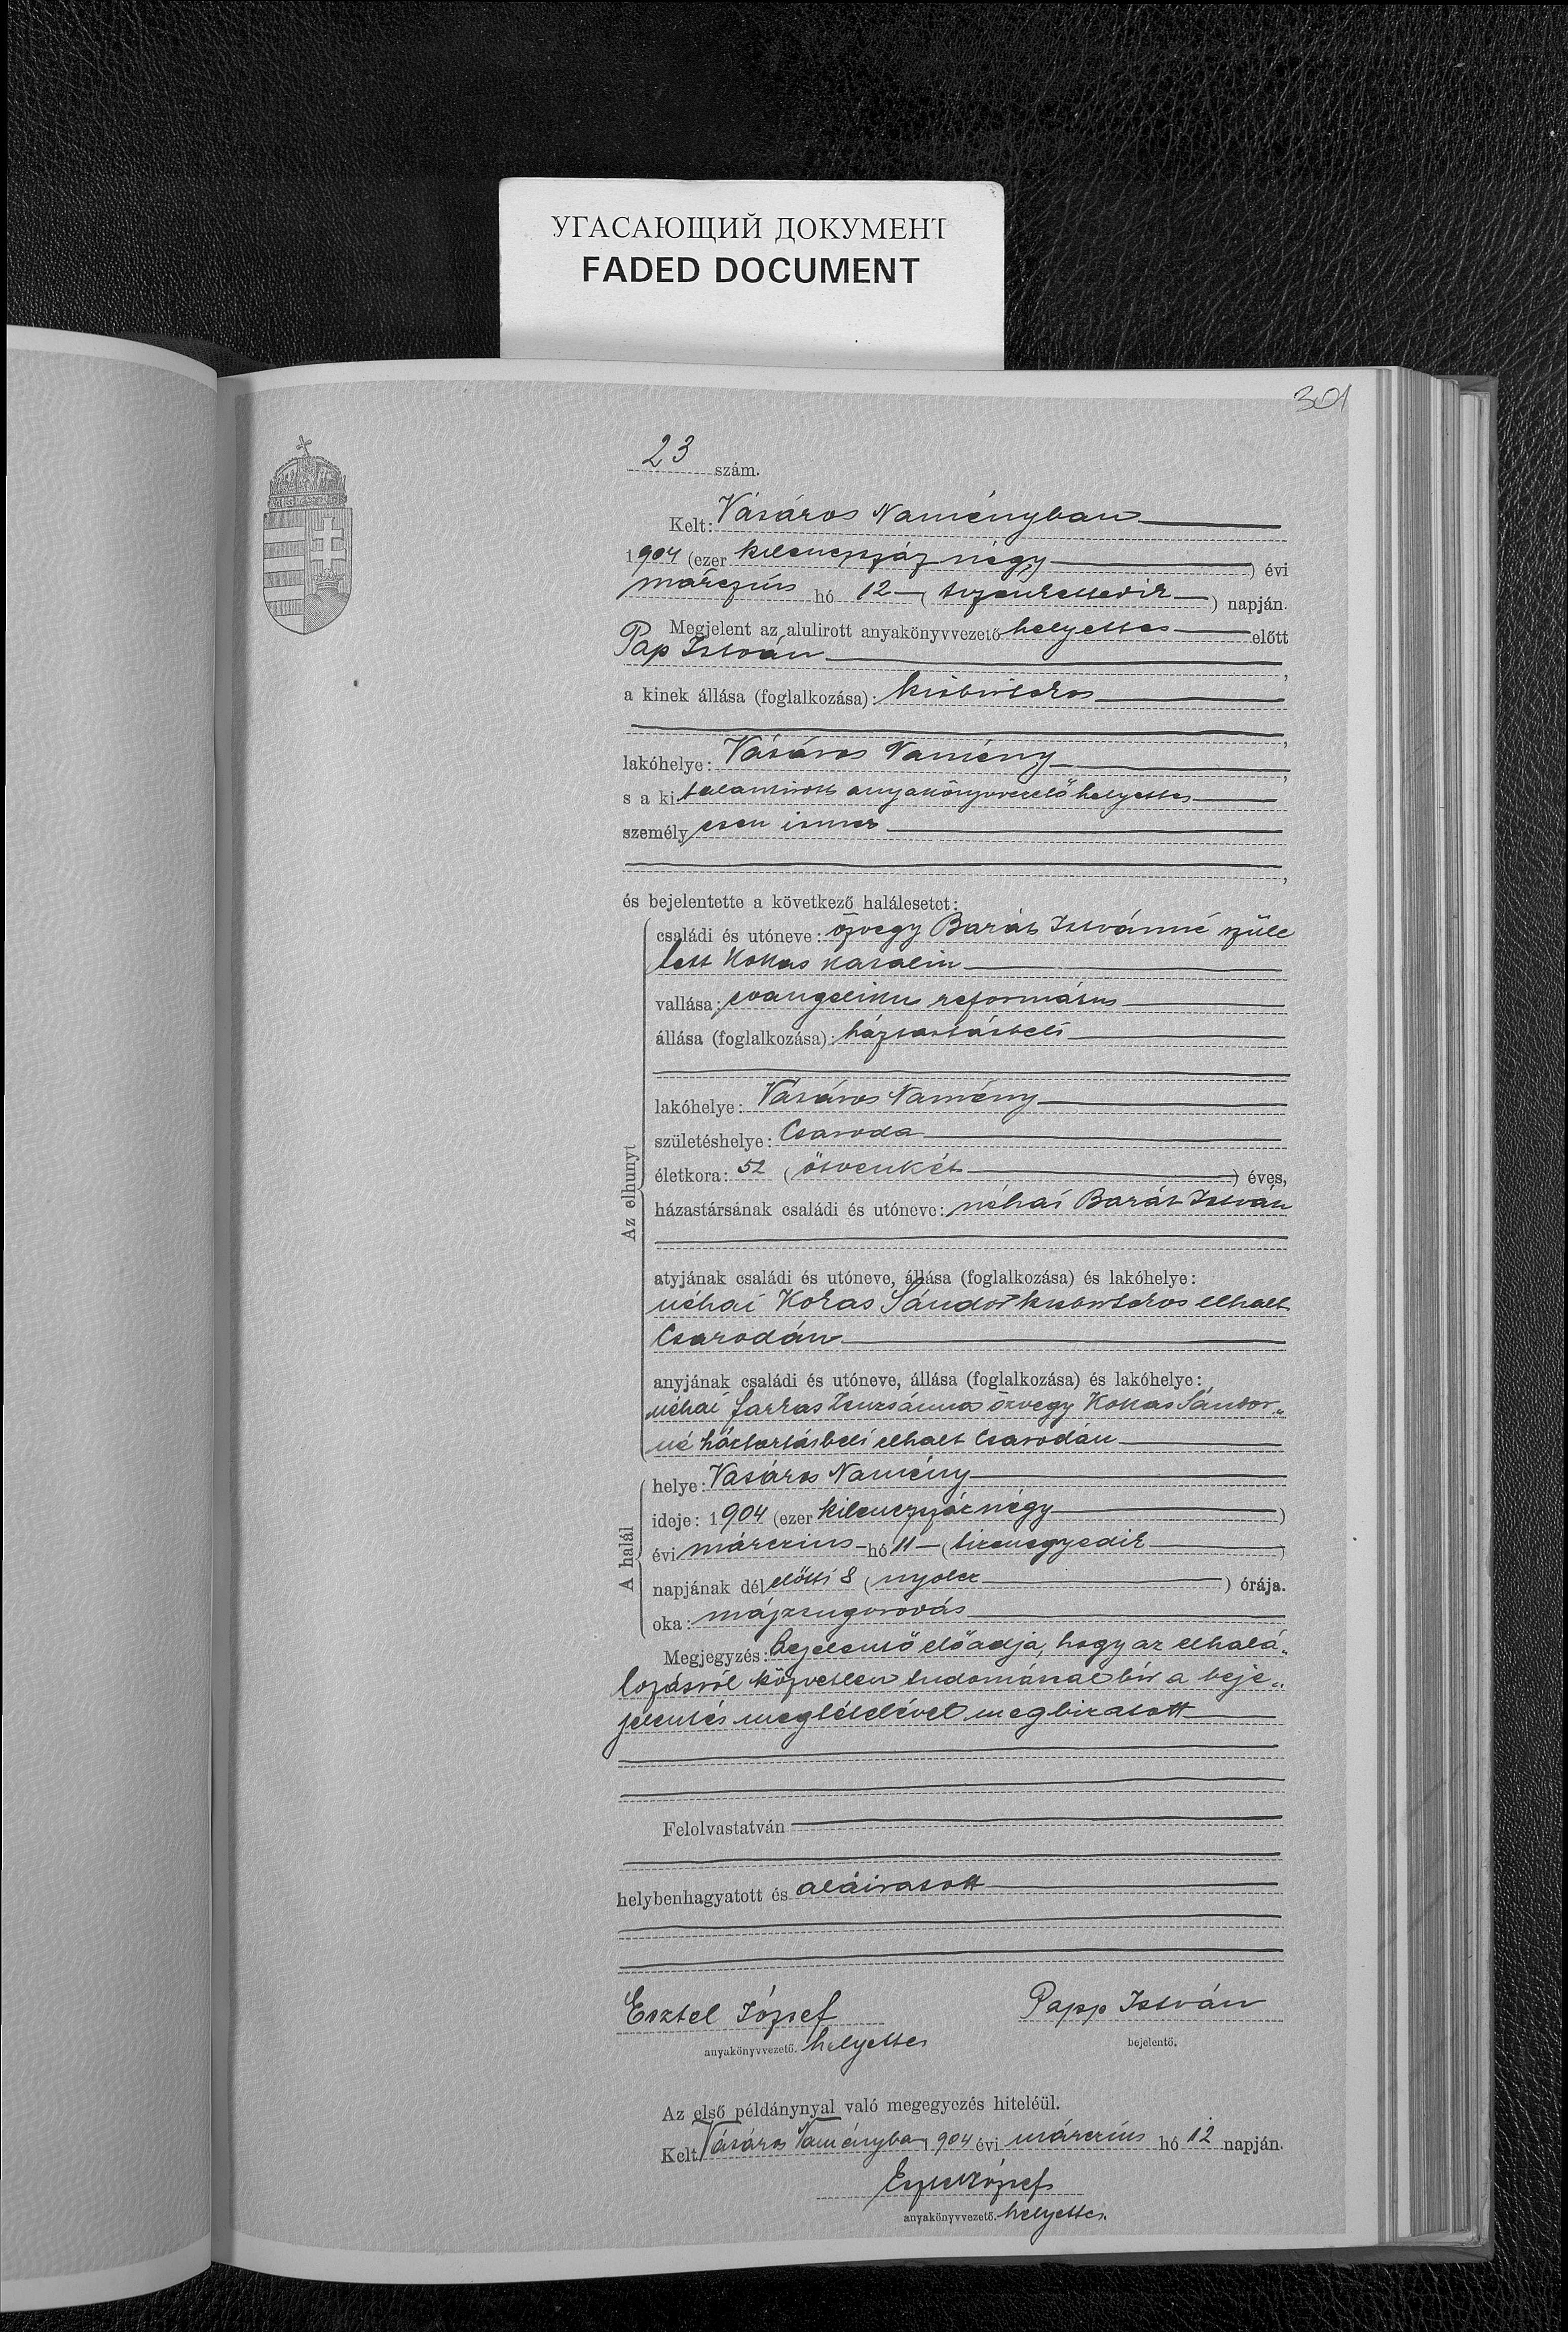 УГАСАЮЩИЙ ДОКУМЕНТ
FADED DOCUMENT
301
23 szám.
Kelt: Vásáros Naményban
1904 (ezer kilenczszáz négy) évi
márczius hó 12 (tizenkettedik) napján.
Megjelent az alulirott anyakönyvvezető helyettes előtt
Pap István,
a kinek állása (foglalkozása): kisbirtokos,
lakóhelye: Vásáros Namény,
s a kit alantirott anyakönyvvezető helyettes
személyesen ismer,
és bejelentette a következő halálesetet:
Az elhunyt
családi és utóneve: özvegy Barát Istvánné szüle
tett Kokas Katalin
vallása: evangelikus református
állása (foglalkozása): háztartásbeli
lakóhelye: Vásáros Namény
születéshelye: Csaroda
életkora: 52 (ötvenkét) éves,
házastársának családi és utóneve: néhai Barát István
atyjának családi és utóneve, állása (foglalkozása) és lakóhelye:
néhai Kokas Sándor kisbirtokos elhalt
Csarodán
anyjának családi és utóneve, állása (foglalkozása) és lakóhelye:
néhai Farkas Zsuzsánna özvegy Kokas Sándor„
né háztartásbeli elhalt Csarodán
A halál
helye: Vásáros Namény
ideje: 1904 (ezer kilenczszáz négy)
évi márczius hó 11 (tizenegyedik)
napjának délelőtti 8 (nyolcz) órája.
oka: májzsugorodás
Megjegyzés: Bejelentő előadja, hogy az elhalá„
lozásról közvetlen tudomással bir a beje„
jelentés megtételével megbizatott
Felolvastatván
helybenhagyatott és aláiratott
Esztel József
anyakönyvvezető. helyettes
Papp István
bejelentő.
Az első példánynyal való megegyezés hiteléül.
Kelt Vásáros Naményba 1904 évi márczius hó 12 napján.
Esztel József
anyakönyvvezető. helyettes.